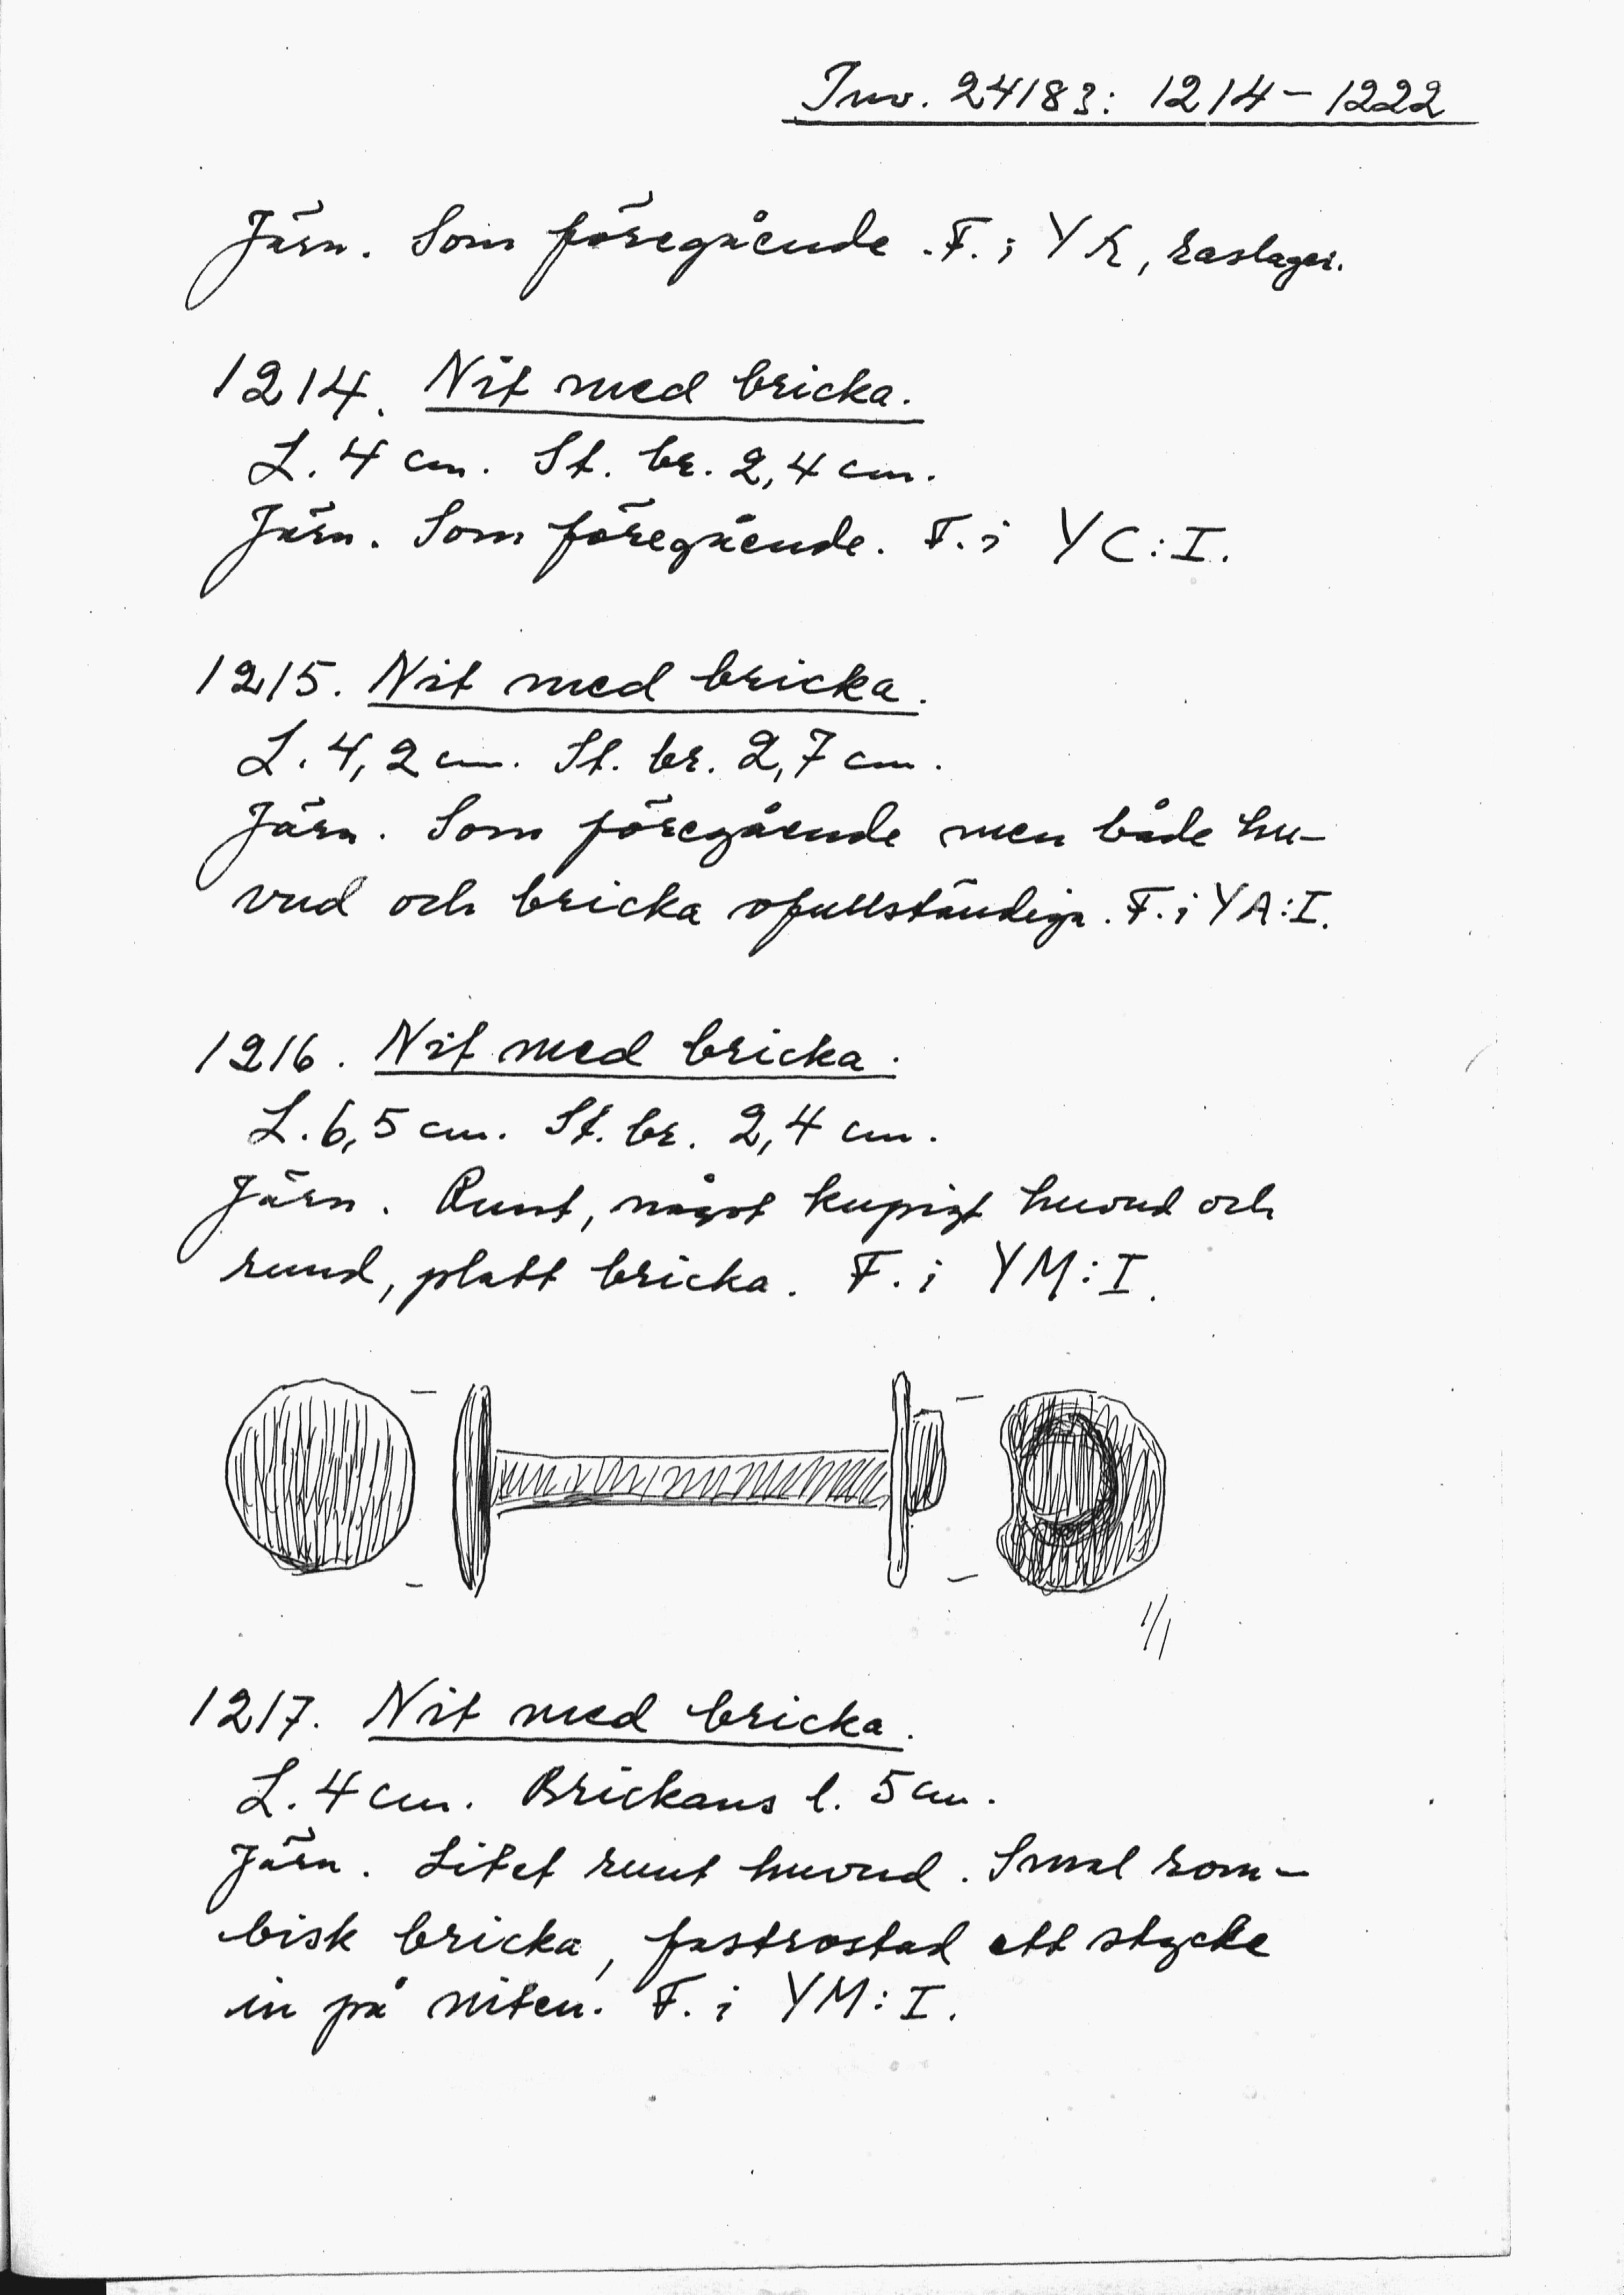 Inv. 24183: 1214-1222
Järn. Som föregående. F. i YK, raslager.
1214. Nit med bricka.
L. 4 cm. St. br. 2,4 cm.
Järn. Som föregående. F. i YC:I.
1215. Nit med bricka.
L. 4,2 cm. St. br. 2,7 cm.
Järn. Som föregående men både hu-
vud och bricka ofullständiga. F. i YA:I.
1216. Nit med bricka.
L. 6,5 cm. St. br. 2,4 cm.
Järn. Runt, något kupigt huvud och
rund, platt bricka. F. i YM:I.
1/1
1217. Nit med bricka.
L. 4 cm. Brickans l. 5 cm.
Järn. Litet runt huvud. Smal rom-
bisk bricka, fastrostad ett stycke
in på niten. F. i YM:I.